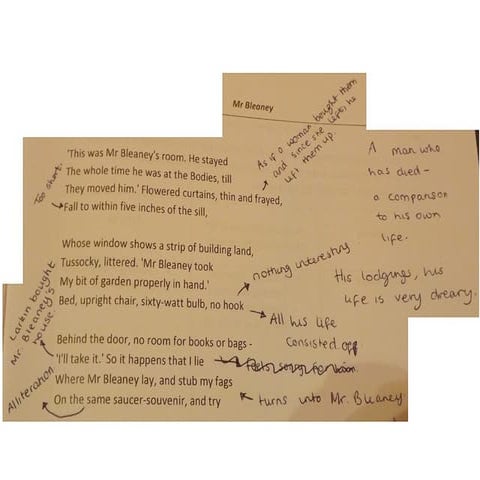 Mr Bleaney
As if a woman bought them
and since she left, he
left them up.
A man who
has died -
a comparison
to his own
life.
'This was Mr Bleaney's room. He stayed
The whole time he was at the Bodies, till
They moved him.' Flowered curtains, thin and frayed,
Fall to within five inches of the sill,
Too short.
Whose window shows a strip of building land,
Tussocky, littered. 'Mr Bleaney took
My bit of garden properly in hand.'
Bed, upright chair, sixty-watt bulb, no hook
nothing interesting
His lodgings, his
life is very dreary.
All his life
consisted off
Larkin bought
Mr. Bleaney's
house
Behind the door, no room for books or bags -
'I'll take it.' So it happens that I lie
Where Mr Bleaney lay, and stub my fags
On the same saucer-souvenir, and try
turns into Mr. Bleaney
Alliteration